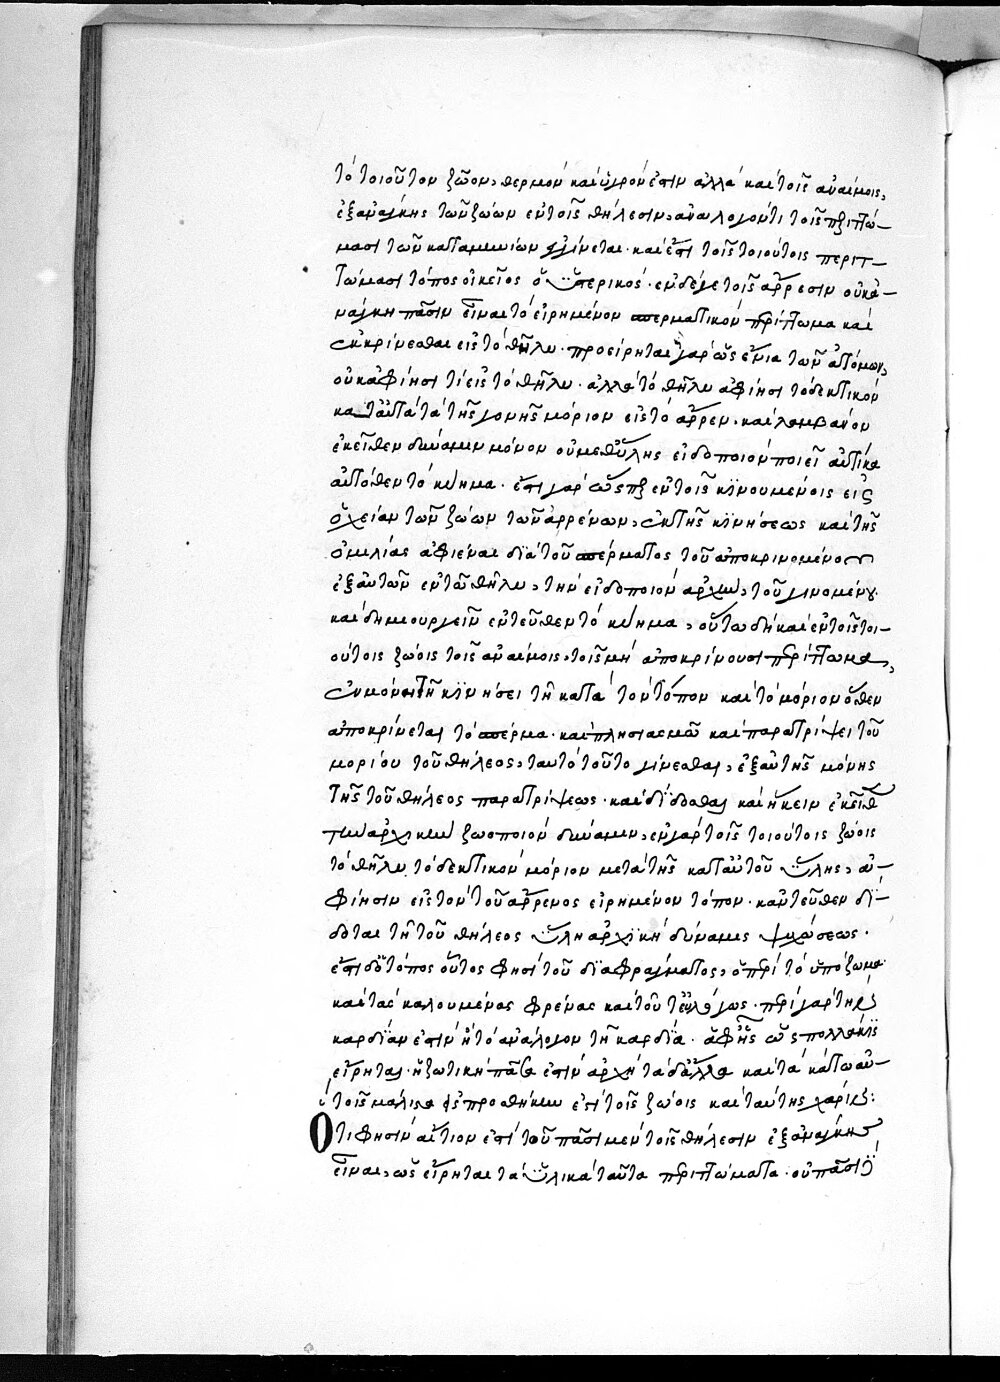 τὸ τοιοῦτον ζῶον, θερμὸν καὶ ὑγρόν ἐστιν ἀλλὰ καὶ τοῖς ἀναίμοις,
ἐξ ἀνάγκης τῶν ζώων ἐν τοῖς θήλεσιν, ἀναλογοῦντι τοῖς περιττώ-
μασι τῶν καταμηνίων γίνεται· καὶ ἔστι τοῖς τοιούτοις περιτ-
τώμασι τόπος οἰκεῖος ὁ ὑστερικός· ἐν δέ γε τοῖς ἄρρεσιν οὐκ ἀ-
νάγκη πᾶσιν εἶναι τὸ εἰρημένον σπερματικὸν περίττωμα καὶ
ἐκκρίνεσθαι εἰς τὸ θῆλυ· προείρηται γὰρ ὡς ἔνια τῶν ἐντόμων,
οὐκ ἀφίησί τι εἰς τὸ θῆλυ· ἀλλὰ τὸ θῆλυ ἀφίησι τὸ δεκτικὸν
κατ' αὐτὰ τὰ τῆς γονῆς μόριον εἰς τὸ ἄρρεν· καὶ λαμβάνον
ἐκεῖθεν δύναμιν μόνον οὐ μεθ' ὕλης εἰδοποιὸν ποιεῖ αὐτίκα
αὐτόθεν τὸ κύημα· ἔστι γὰρ ὥσπερ ἐν τοῖς κινουμένοις εἰς
ὀχείαν τῶν ζώων τῶν ἀρρένων, ἐκ τῆς κινήσεως καὶ τῆς
ὁμιλίας ἀφιέναι διὰ τοῦ σπέρματος τοῦ ἀποκρινομένου
ἐξ αὐτῶν ἐν τῶ θήλει, τὴν εἰδοποιὸν ἀρχὴν, τοῦ γινομένου
καὶ δημιουργεῖν ἐντεῦθεν τὸ κύημα, οὕτω δὴ καὶ ἐν τοῖς τοι-
ούτοις ζώοις τοῖς ἀναίμοις, τοῖς μὴ ἀποκρίνουσι περίττωμα,
ἐν μόνη τῆ κινήσει τῆ κατὰ τὸν τόπον καὶ τὸ μόριον ὅθεν
ἀποκρίνεται τὸ σπέρμα· καὶ πλησιασμῶ καὶ παρατρίψει τοῦ
μορίου τοῦ θήλεος, ταυτὸ τοῦτο γίνεσθαι, ἐξ αὐτῆς μόνης
τῆς τοῦ θήλεος παρατρίψεως· καὶ δίδοσθαι καὶ ἥκειν ἐκεῖθεν
τὴν ἀρχικὴν ζωοποιὸν δύναμιν, ἐν γὰρ τοῖς τοιούτοις ζώοις
τὸ θῆλυ τὸ δεκτικὸν μόριον μετὰ τῆς κατ' αὐτοῦ ὕλης, ἀ-
φίησιν εἰς τὸν τοῦ ἄρρενος εἰρημένον τόπον· κἀντεῦθεν δί-
δοται τῆ τοῦ θήλεος ὕλη ἀρχικὴ δύναμις ψυχώσεως·
ἔστι δὲ τόπος οὗτος φησὶ τοῦ διαφράγματος, ὁ περὶ τὸ ὑπόζωμα
καὶ τὰς καλουμένας φρένας καὶ τοῦτ' εὐλόγως· περὶ γὰρ τὴν
καρδίαν ἐστὶν ἢ τὸ ἀνάλογον τῆ καρδία· ἀφ' ἧς ὡς πολλάκις
εἴρηται· ἡ ζωτικὴ πᾶσα ἐστὶν ἀρχὴ τὰ δ' ἄλλα καὶ τὰ κάτω αὐ-
τοῖς μάλιστα ὡς προσθήκην ἐστὶ τοῖς ζώοις καὶ ταύτης χάριν:
Ὅτι φησὶν αἴτιον ἐστὶ τοῦ πᾶσι μὲν τοῖς θήλεσιν ἐξ ἀνάγκης
εἶναι, ὡς εἴρηται τὰ ὑλικὰ ταῦτα περιττώματα· οὐ πᾶσι